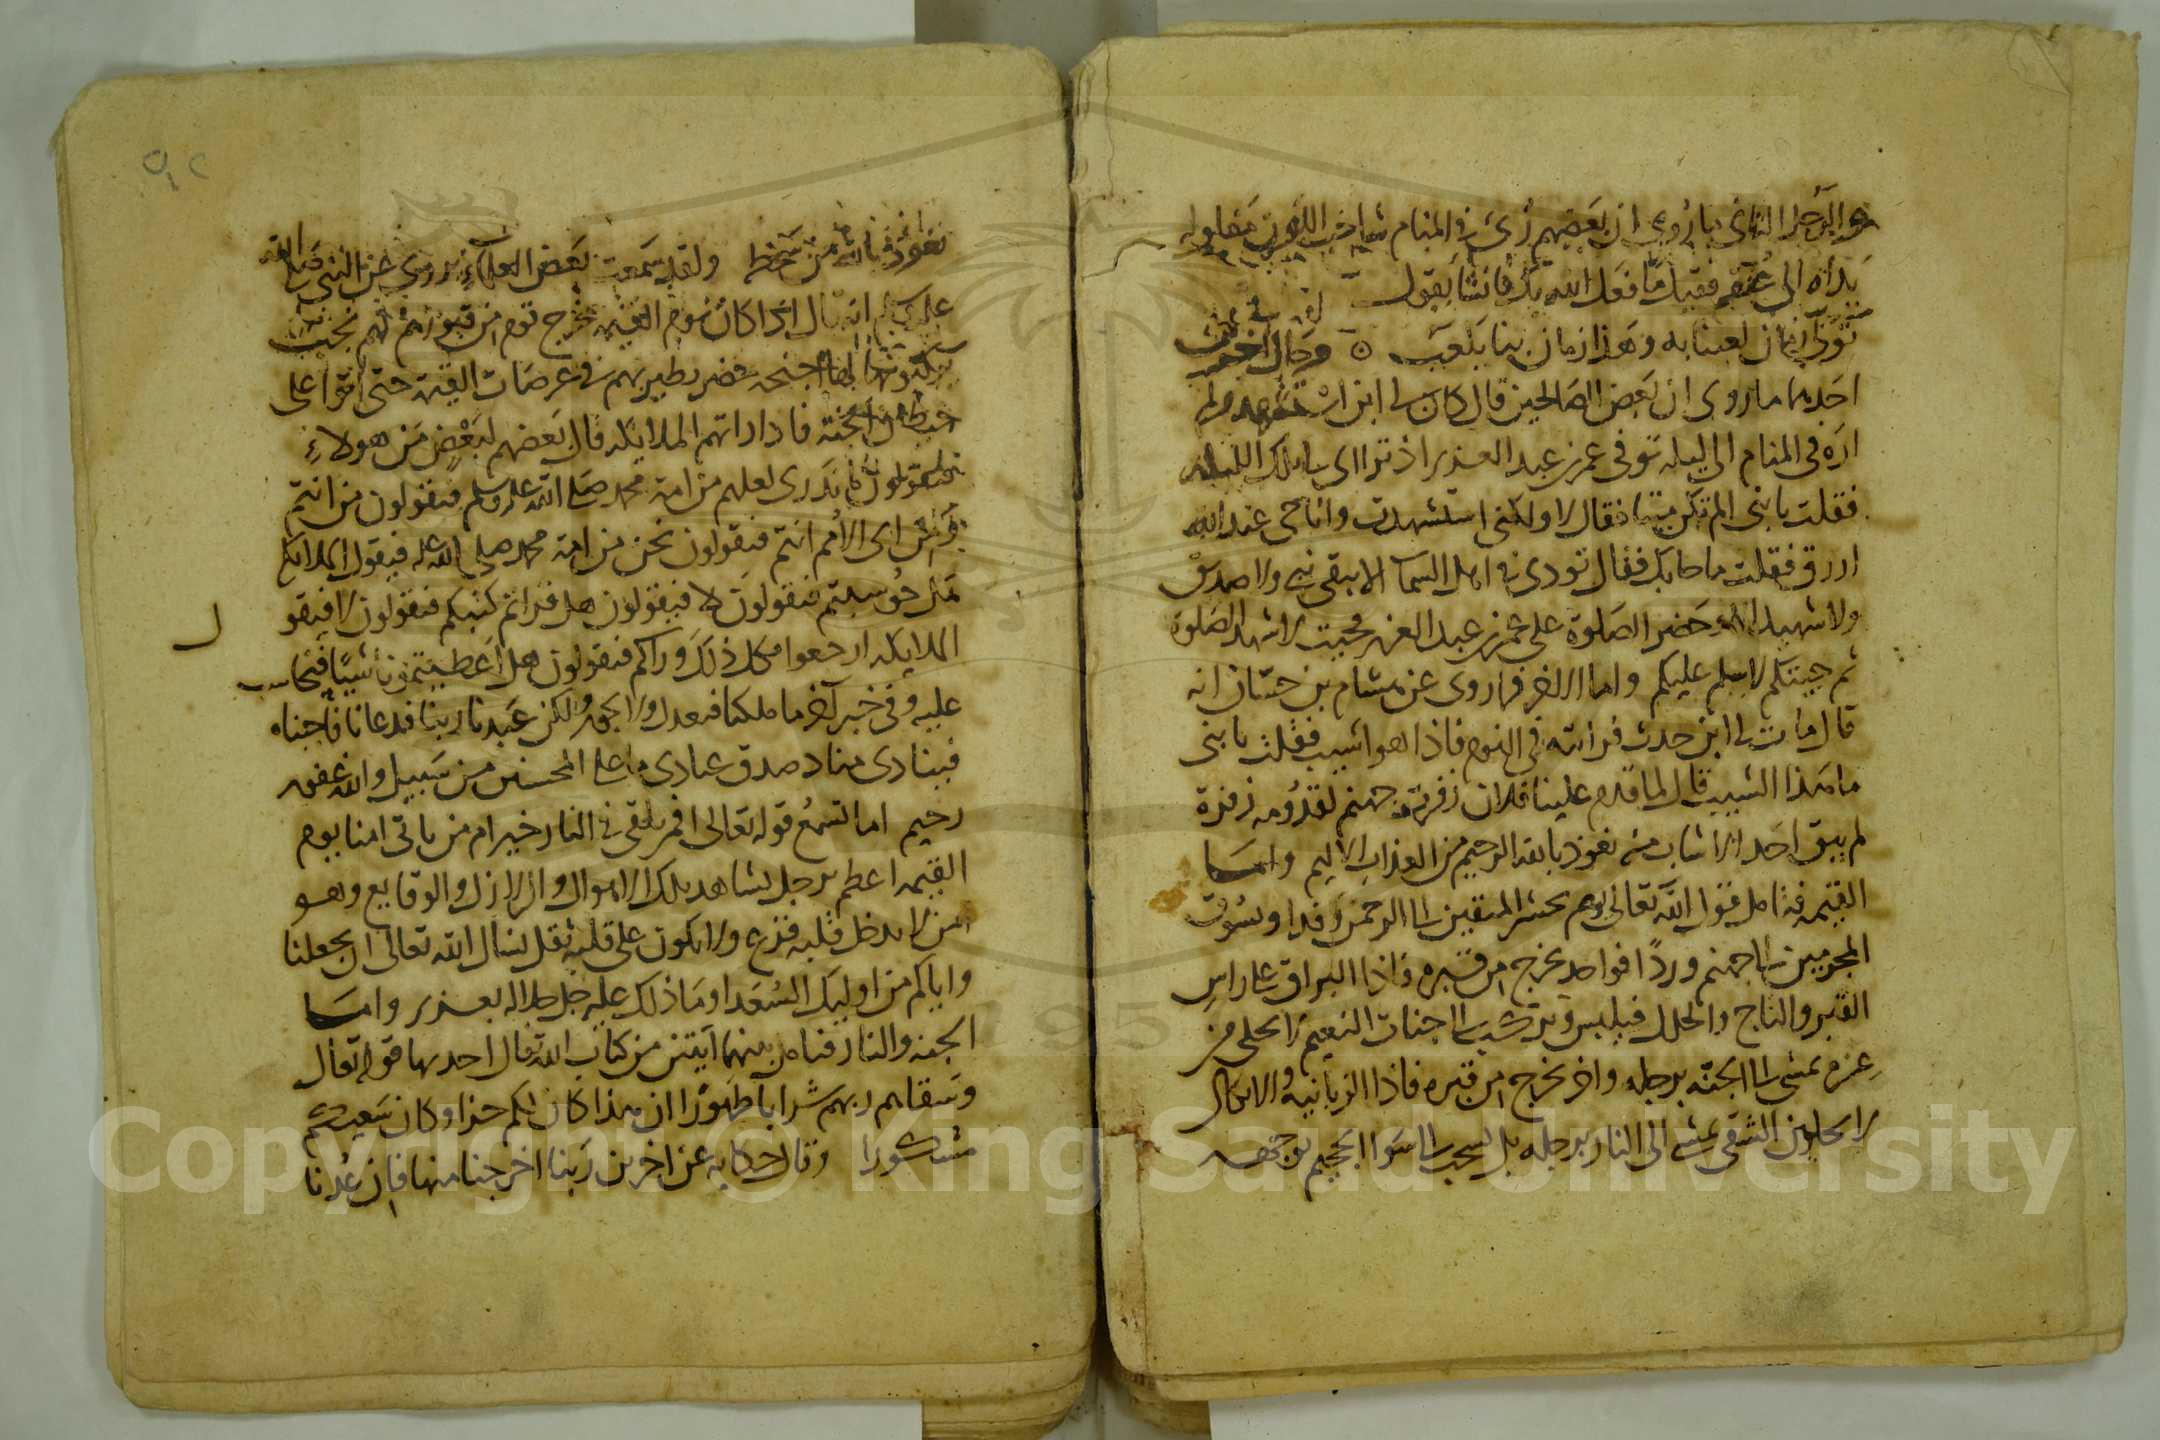 والرجل الثاني ما روي ان بعضهم رئ في المنام شاحب اللون مغلوله
يداه الى عنقه فقيل ما فعل الله بك فانشا يقول
تولى زمان لعبنا به وهذا زمان بنا يلعب ٥ وحال اخر
احدهما ما روى ان بعض الصالحين قال كان لي ابن استشهد ولم
اره في المنام الى ليلة توفي عمر بن عبد العزيز اذ ترااى لي تلك الليلة
فقلت يا بني الم تكن ميتا فقال لا ولكني استشهدت وانا حي عند الله
ارزق فقلت ما جا بك فقال نودي في اهل السما الا لا يبقى نبي ولا صديق
ولا شهيد الا وحضر الصلوة على عمر بن عبد العزيز فجيت لاشهد الصلوة
ثم جيتكم لاسلم عليكم واما الاخر فما روى عن هشام بن حسان انه
قال مات لي ابن حدث فرايته في النوم فاذا هو اشيب فقلت يا بني
ما هذا الشيب قال لما قدم علينا فلان زفرت جهنم لقدومه زفرة
لم يبق احد الا شاب منه نعوذ بالله الرحيم من العذاب الاليم واما
القيمة فتامل قول الله تعالى يوم نحشر المتقين الى الرحمن وفدا ونسوق
المجرمين الى جهنم وردا فواحد يخرج من قبره فاذا البراق على راس
القبر والتاج والحلل فيلبس ويركب الى جنات النعيم لا يخلى من
عزه يمشي الى الجنة برجله واخر يخرج من قبره فاذا الزبانية والانكال
لا يخلون الشقي يمشي الى النار برجله بل يسحب الى سوا الجحيم بوجهه
٥٢
نعوذ بالله من سخطه ولقد سمعت بعض العلماء يروي عن النبي صلى الله
عليه وسلم انه قال اذا كان يوم القيمة يخرج قوم من قبورهم لهم نجب
يركبونها لها اجنحة خضر تطير بهم في عرصات القيمة حتى اتوا على
حيطان الجنة فاذا راتهم الملائكة قال بعضهم لبعض من هولاء
فيقولون ما ندري لعلهم من امة محمد صلى الله عليه وسلم فيقولون من انتم
ومن اى الامم انتم فيقولون نحن من امة محمد صلى الله عليه فيقول الملائكة
هل حوسبتم فيقولون لا فيقولون هل قراتم كتبكم فيقولون لا فيقو
ل
الملائكة ارجعوا فكل ذلك وراكم فيقولون هل اعطيتمونا شيا فنحاسب
عليه وفي خبر اخر ما ملكنا فنعدل ولا نجور ولكن عبدنا ربنا فدعانا فاجبناه
فينادى مناد صدق عبادي ما على المحسنين من سبيل والله غفور
رحيم اما تسمع قوله تعالى افمن يلقى في النار خير ام من ياتي امنا يوم
القيمة اعظم برجل يشاهد تلك الاهوال والزلازل والوقايع وهو
امن لا يدخل قلبه فزع ولا يكون على قلبه ثقل نسال الله تعالى ان يجعلنا
واياكم من اوليك السعدا وما ذلك عليه جل جلاله بعزيز واما
الجنة والنار فتامل فيهما ايتين من كتاب الله قال احدهما قوله تعالى
وسقاهم ربهم شرابا طهورا ان هذا كان لكم جزا وكان سعيكم
مشكورا وقال حكاية عن اخرين ربنا اخرجنا منها فان عدنا
Copyright © King Saud University